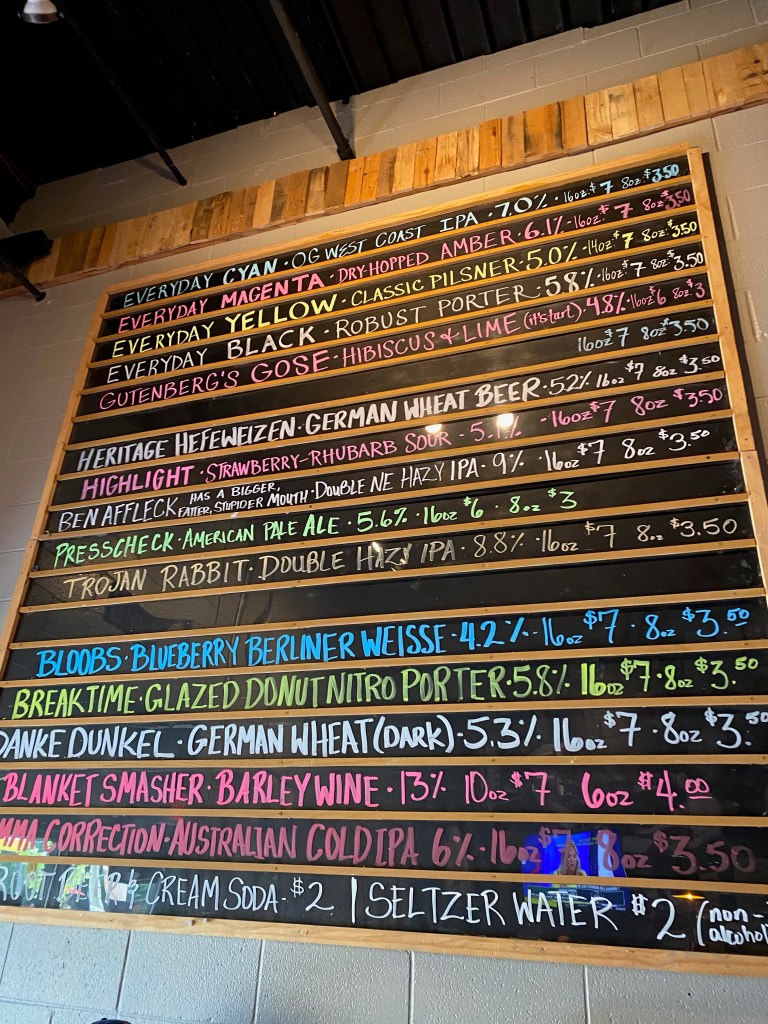 EVERYDAY CYAN · OG WEST COAST IPA · 7.0% · 16oz $7 8oz $3.50
EVERYDAY MAGENTA · DRY-HOPPED AMBER · 6.1% - 16oz $7 8oz $3.50
EVERYDAY YELLOW · CLASSIC PILSNER · 5.0% · 14oz $7 8oz $3.50
EVERYDAY BLACK · ROBUST PORTER · 5.8% - 16oz $7 8oz $3.50
GUTENBERG'S GOSE · HIBISCUS & LIME (it's tart) · 4.8% · 16oz $6 8oz $3
16oz $7 8oz $3.50
HERITAGE HEFEWEIZEN · GERMAN WHEAT BEER · 5.2% 16oz $7 8oz $3.50
HIGHLIGHT · STRAWBERRY-RHUBARB SOUR - 5.1% - 16oz $7 8oz $3.50
BEN AFFLECK HAS A BIGGER, FATTER, STUPIDER MOUTH · DOUBLE NE HAZY IPA · 9% · 16oz $7 8oz $3.50
PRESSCHECK · AMERICAN PALE ALE · 5.6% · 16oz $6 · 8oz $3
TROJAN RABBIT · DOUBLE HAZY IPA · 8.8% · 16oz $7 8oz $3.50
BLOOBS · BLUEBERRY BERLINER WEISSE · 4.2% · 16oz $7 · 8oz $3.50
BREAKTIME · GLAZED DONUT NITRO PORTER · 5.8% 16oz $7 · 8oz $3.50
DANKE DUNKEL · GERMAN WHEAT (DARK) · 5.3% 16oz $7 · 8oz $3.50
BLANKET SMASHER · BARLEYWINE · 13% 10oz $7 6oz $4.00
MMA CORRECTION · AUSTRALIAN COLD IPA 6% · 16oz $7 8oz $3.50
ROOT BEER & CREAM SODA - $2 | SELTZER WATER $2 (non-alcohol